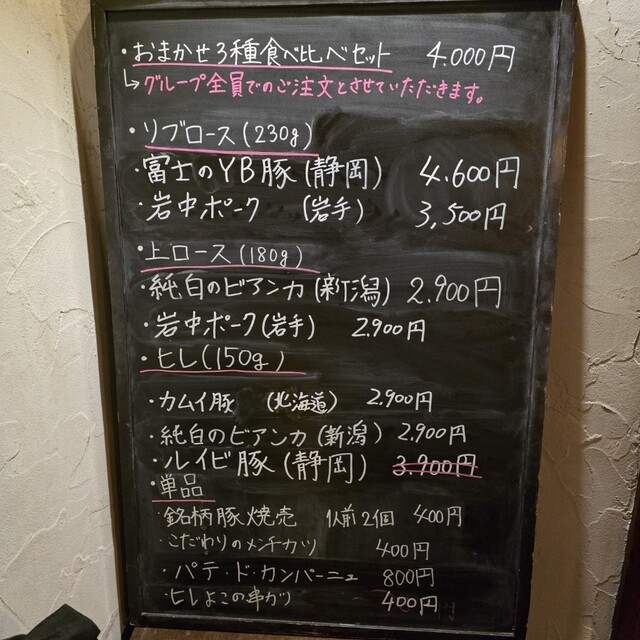 ・おまかせ3種食べ比べセット 4.000円
↳グループ全員でのご注文とさせていただきます。
・リブロース(230g)
・富士のYB豚(静岡) 4.600円
・岩中ポーク (岩手) 3,500円
・上ロース(180g)
・純白のビアンカ(新潟) 2.900円
・岩中ポーク(岩手) 2.900円
・ヒレ(150g)
・カムイ豚 (北海道) 2.900円
・純白のビアンカ(新潟) 2,900円
・ルイビ豚(静岡) 3.900円
・単品
・銘柄豚焼売 1人前2個 400円
・こだわりのメンチカツ 400円
・パテ・ド・カンパーニュ 800円
・ヒレよこの串カツ 400円